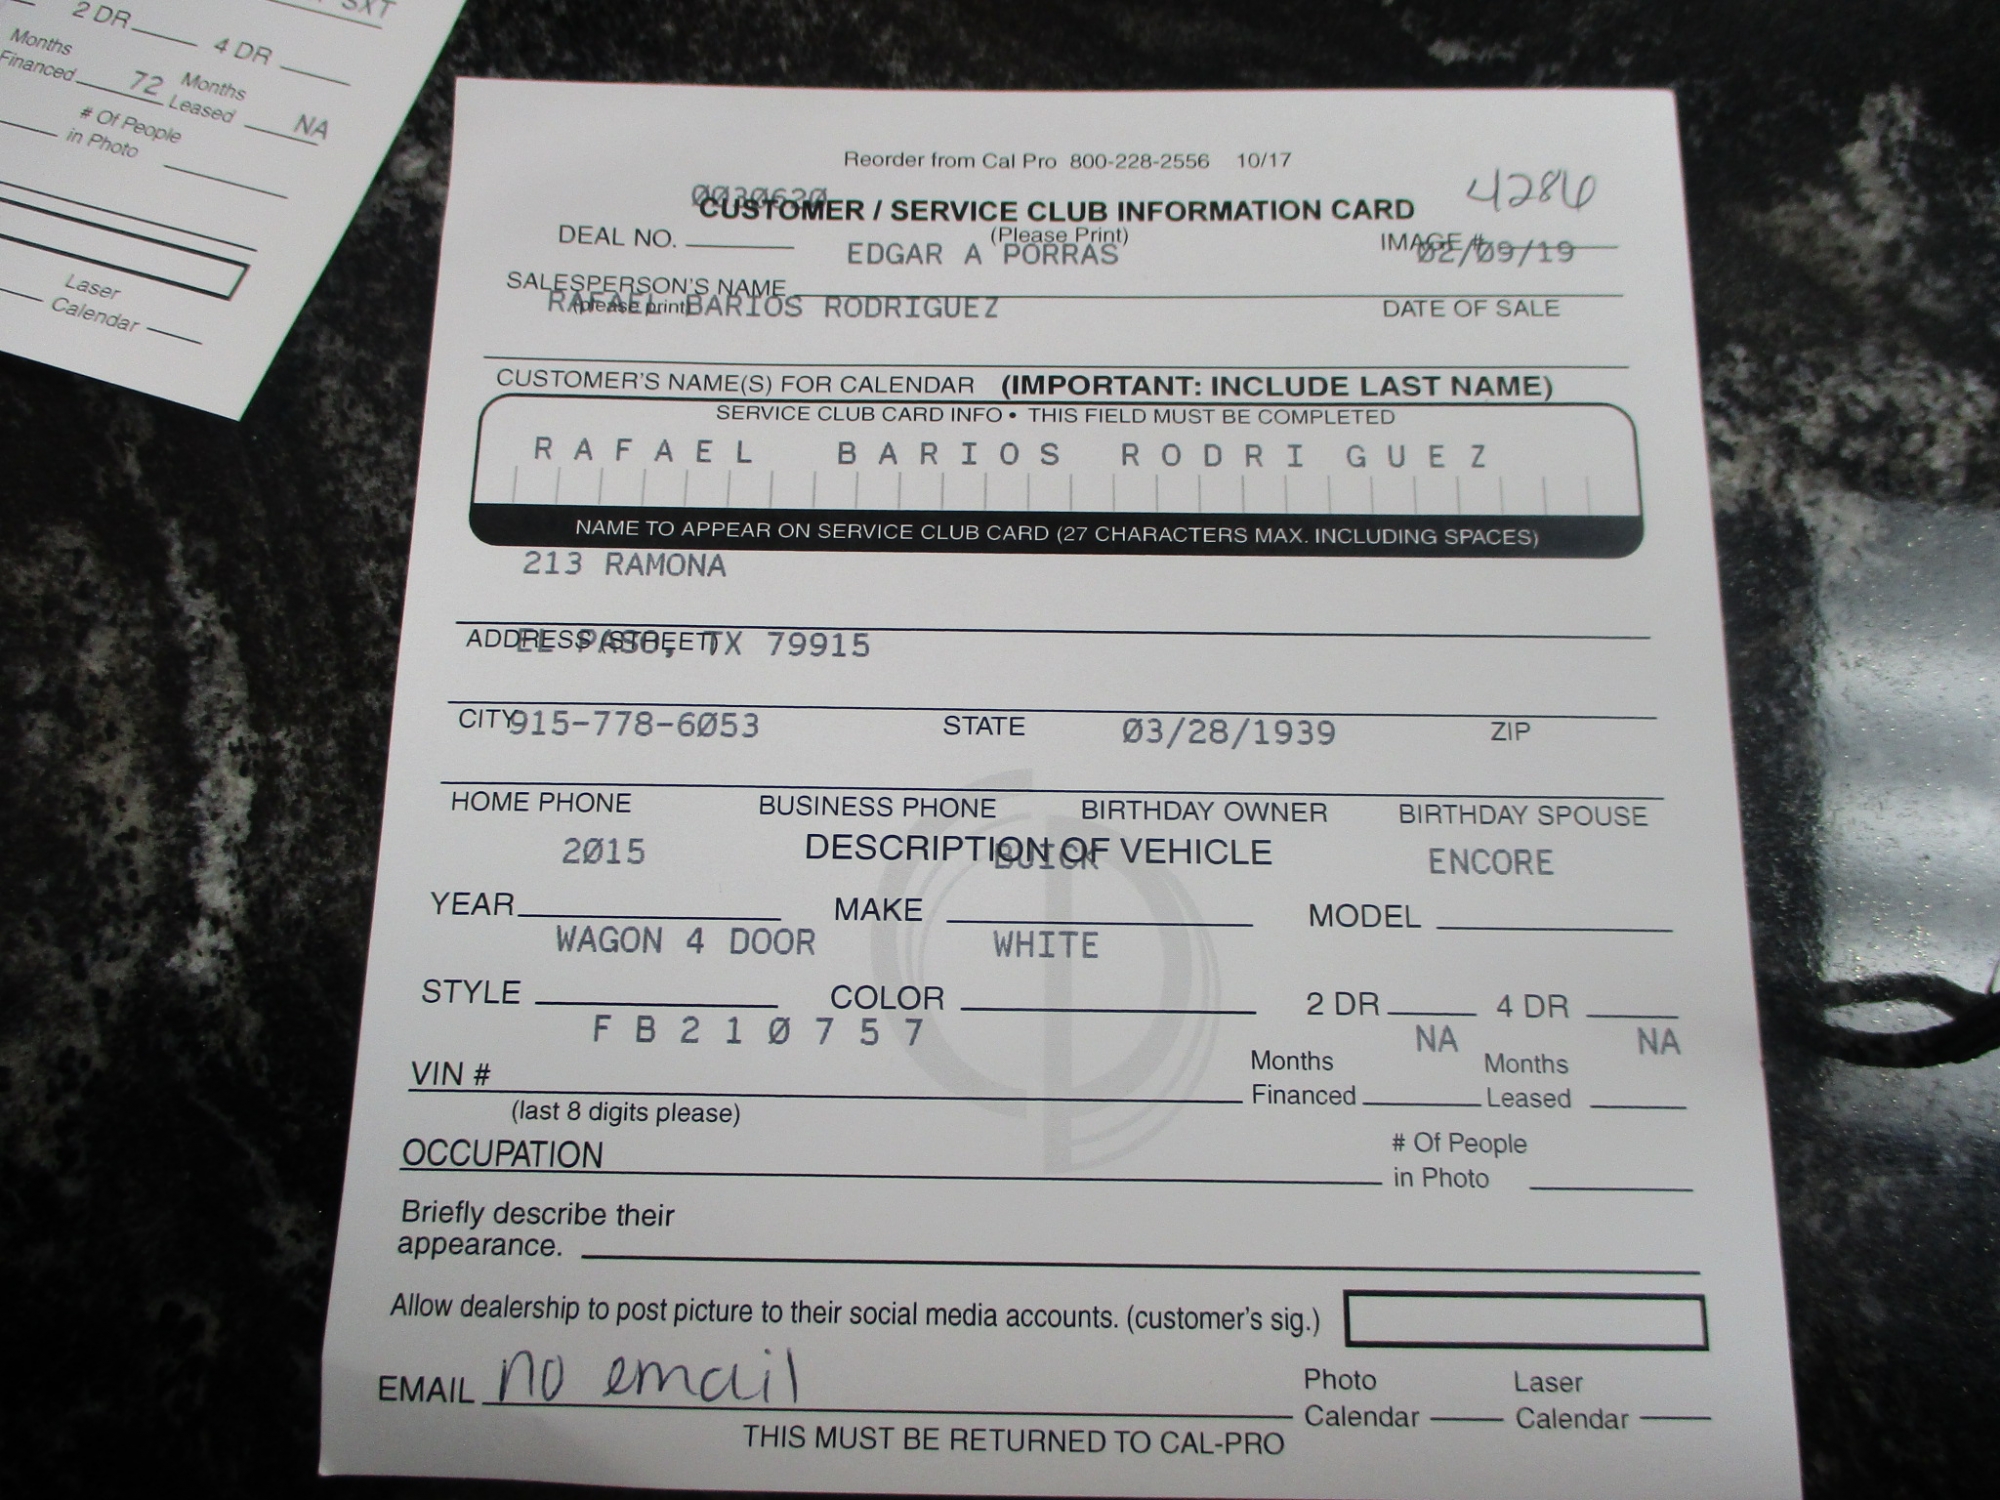 SXT
2 DR 4 DR
Months Financed 72 Months Leased NA
# Of People in Photo
Laser Calendar
Reorder from Cal Pro 800-228-2556 10/17
0030620
4286
CUSTOMER / SERVICE CLUB INFORMATION CARD
(Please Print)
DEAL NO. IMAGE #
EDGAR A PORRAS 02/09/19
SALESPERSON'S NAME
(please print) DATE OF SALE
RAFAEL BARIOS RODRIGUEZ
CUSTOMER'S NAME(S) FOR CALENDAR (IMPORTANT: INCLUDE LAST NAME)
SERVICE CLUB CARD INFO • THIS FIELD MUST BE COMPLETED
RAFAEL BARIOS RODRIGUEZ
NAME TO APPEAR ON SERVICE CLUB CARD (27 CHARACTERS MAX. INCLUDING SPACES)
213 RAMONA
ADDRESS (STREET)
EL PASO, TX 79915
CITY STATE ZIP
915-778-6053 03/28/1939
HOME PHONE BUSINESS PHONE BIRTHDAY OWNER BIRTHDAY SPOUSE
DESCRIPTION OF VEHICLE
2015 BUICK ENCORE
YEAR MAKE MODEL
WAGON 4 DOOR WHITE
STYLE COLOR 2 DR 4 DR
FB210757 NA NA
VIN # Months Financed Months Leased
(last 8 digits please)
OCCUPATION # Of People in Photo
Briefly describe their
appearance.
Allow dealership to post picture to their social media accounts. (customer's sig.)
EMAIL no email Photo Calendar Laser Calendar
THIS MUST BE RETURNED TO CAL-PRO